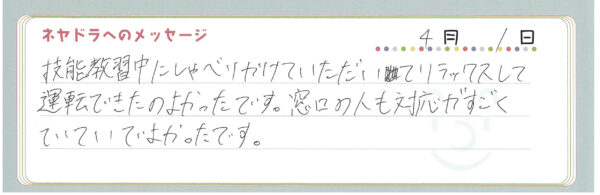 ネヤドラへのメッセージ 4月 1日
技能教習中にしゃべりかけていただいてリラックスして
運転できたのよかったです。窓口の人も対応がすごく
ていていでよかったです。